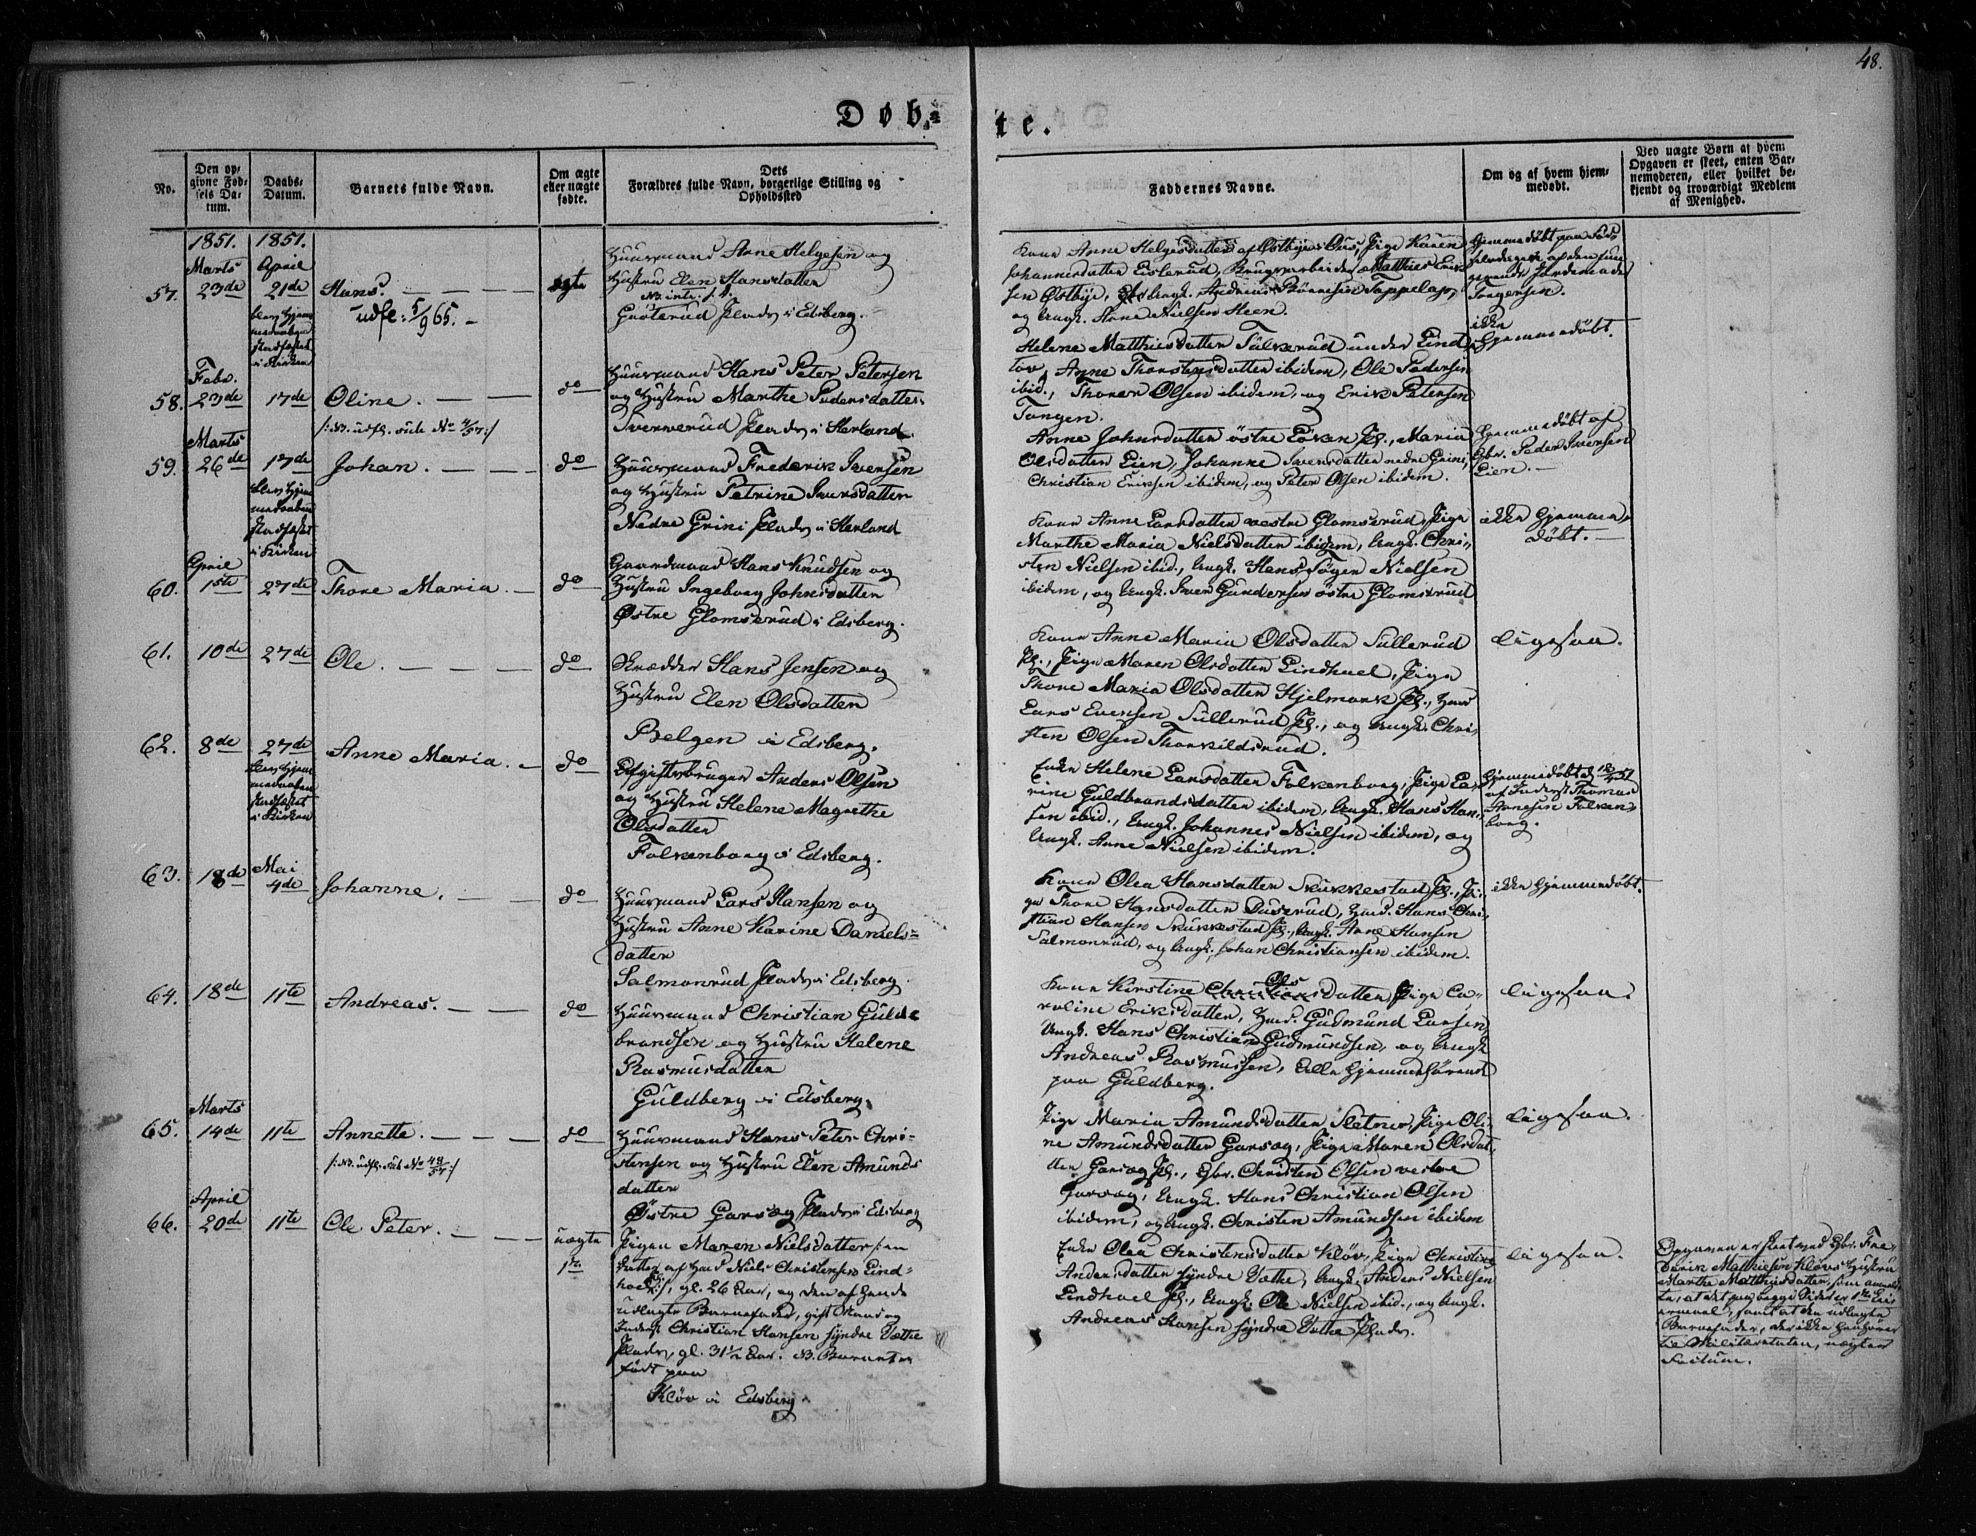 48.
Døb-
te.
No.
Den op-
givne Fød-
sels Da-
tum.
Daabs-
Datum.
Barnets fulde Navn.
Om ægte
eller uægte
fødte.
Dets
Forældres fulde Navn, borgerlige Stilling og
Opholdssted
Faddernes Navne.
Om og af hvem hjem-
medøbt.
Ved uægte Børn af hvem
Opgaven er skeet, enten Bar-
nemoderen, eller hvilket be-
kjendt og troværdigt Medlem
af Menighed.
1851. 1851.
Marts April
57. 23de 21de Hans. ægte
udfl: 5/9 65.
blev hjem-
medaaben
stadfæstet
i Kirken
Huusmand Arne Helgesen og
Hustru Elen Hansdatter
Grøterud Plads i Edsberg.
Kone Anne Helgesdatter af Østbye Huus, Pige Karen
Johannesdatter Eisterud, Brugsarbeider Matthies Erik-
sen Østbye, Ungk. Andreas Tappelas,
og Ungk. Arne Nielsen Steen.
Hjemmedøbt paa
Torgersen.
Febr.
58. 23de 17de Oline. do
/: NB. udfl. sub No 4/57 :/
Huusmand Hans Peter Petersen
og Hustru Marthe Pedersdatter
Sververud Plads i Herland.
Helene Matthiesdatter Sülkerud under Lind-
tov, Anne Thorstensdatter ibidem, Ole Pedersen
ibid., Thorer Olsen ibidem, og Erik Petersen
Tangen.
ikke
hjemmedøbt.
Marts
59. 26de 17de Johan. do
blev hjem-
medaaben
stadfæstet
i Kirken
Huusmand Frederik Iversen
og Hustru Petrine Iversdatter
Nedre Grini Plads i Herland
Anne Johnsdatter østre Löken Pl., Maria
Olsdatter Lien, Johanne Svensdatter nedre Grini,
Christian Eriksen ibidem, og Peter Olsen ibidem.
Hjemmedøbt af
Gbr. Peder Iversen
Lien.
April
60. 1ste 27de Thone Maria. do
Gaardmand Hans Knudsen og
Hustru Ingeborg Johnsdatter
Østre Glomsrud i Edsberg.
Kone Anne Larsdatter vestre Glomsrud, Pige
Marthe Maria Nielsdatter ibidem, Ungk. Chri-
sten Nielsen ibid., Ungk. Hans Jögen Nielsen
ibidem, og Ungk. Iver Gundersen østre Glomsrud
ikke hjemme-
døbt.
61. 10de 27de Ole. do
Skrædder Hans Jensen og
Hustru Elen Olsdatter
Belgen i Edsberg.
Kone Anne Maria Olsdatter Sullerud
Pl., Pige Maren Olsdatter Lindhael, Pige
Thone Maria Olsdatter Hjelmark Pl., Hmd
Lars Evensen Sullerud Pl., og Ungk. Chri-
sten Olsen Thorkildsrud.
ligesaa.
62. 8de 27de Anne Maria. do
blev hjem-
medaaben
stadfæstet
i Kirken
Afgiftsbruger Anders Olsen
og Hustru Helene Magrethe
Olsdatter
Folkenborg i Edsberg.
Enke Helene Larsdatter Folkenborg, Pige Ca-
rine Guldbrandsdatter ibidem, Ungk. Hans Han-
sen ibid., Ungk. Johannes Nielsen ibidem, og
Ungk. Arne Nielsen ibidem.
Hjemmedøbt
af Inderst Thomas
Arnesen Folken-
borg.
Mai
63. 18de 4de Johanne. do
Huusmand Lars Hansen og
Hustru Anne Karine Daniels-
datter
Salmonrud Plads i Edsberg.
Kone Olea Hansdatter Skukkestad Pl., Pi-
ge Thone Hansdatter Dusrud, Hmd. Hans Chri-
stian Hansen Skukkestad Pl., Ungk. Arne Hansen
Salmonrud, og Ungk. Johan Christiansen ibidem.
ikke hjemmedøbt.
64. 18de 11te Andreas. do
Huusmand Christian Gulde-
brandsen og Hustru Helene
Rasmusdatter
Guldberg i Edsberg.
Kone Kirstine Olsdatter, Pige Ca-
roline Eriksdatter, Hmd. Gudmund Larsen,
Ungk. Hans Christian Gudmundsen, og Ungk.
Andreas Rasmussen, Alle hjemmehørende
paa Guldberg.
ligesaa.
Marts
65. 14de 11te Annette. do
/: NB. udfl. sub No 48/57 :/
Huusmand Hans Peter Chri-
stensen og Hustru Elen Amunds-
datter
Østre Garseg Plads i Edsberg
Pige Maria Amundsdatter Sletner, Pige Oli-
ne Amundsdatter Garseg, Pige Maren Olsdat-
ter Garseg Pl., Gbr. Christen Olsen vestre
Garseg, Ungk. Hans Christian Olsen
ibidem, og Ungk. Christen Amundsen ibidem
ligesaa.
April
66. 20de 11te Ole Peter. uægte
1ste
Pigen Maren Nielsdatter /: en
Datter af Hmd Niels Christensen Lind-
hoel :/, gl. 26 Aar, og den af hende
udlagte Barnefader, gift Mand og
Inderst Christian Hansen syndre Væthe
Plads, gl. 31 1/2 Aar. NB. Barnet er
født paa
Kløv i Edsberg.
Enke Olea Christensdatter Kløv, Pige Christine
Andersdatter syndre Væthe, Ungk. Anders Nielsen
Lindhael Pl., Ungk. Ole Nielsen ibid., og Ungk.
Andreas Hansen syndre Væthe Plads.
ligesaa.
Opgaven er skeet ved Gbr. Fre-
derik Matthiesen Kløvs Hustru
Marthe Matthiesdatter, som anmeld-
te, at det paa begge Sider er 1ste Lei-
ermaal, samt at den udlagte
Barnefader, der ikke henhører
til Militæretaten, nægter
Factum.